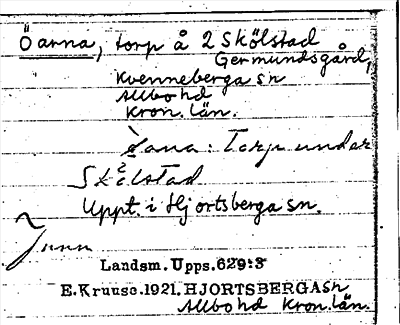 Öarna, torp å 2 Skölstad
Germundsgård,
Kvenneberga sn
Allbo hd
Kron. län.
Torp under
Skölstad
Uppt. i Hjortsberga sn.
Landsm. Upps. 629:3
E. Kruuse. 1921. HJORTSBERGA sn
Allbo hd Kron. län.